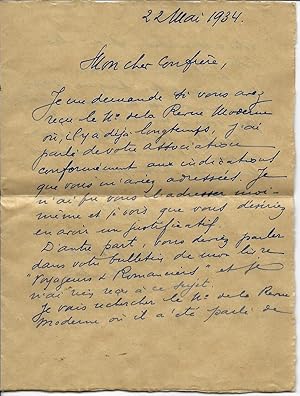 22 Mai 1934.
Mon cher Confrère,
Je me demande si vous avez
reçu le N° de la Revue Moderne
où, il y a déjà longtemps, j'ai
parlé de votre Association
conformément aux indications
que vous m'aviez adressées. Je
n'ai pu vous l'adresser moi-
même et je vois que vous désiriez
en avoir un justificatif.
D'autre part, vous deviez parler
dans votre bulletin de mon livre
"Voyageurs & Romanciers" et je
n'ai rien reçu à ce sujet.
Je vais rechercher le N° de la Revue
Moderne où il a été parlé de